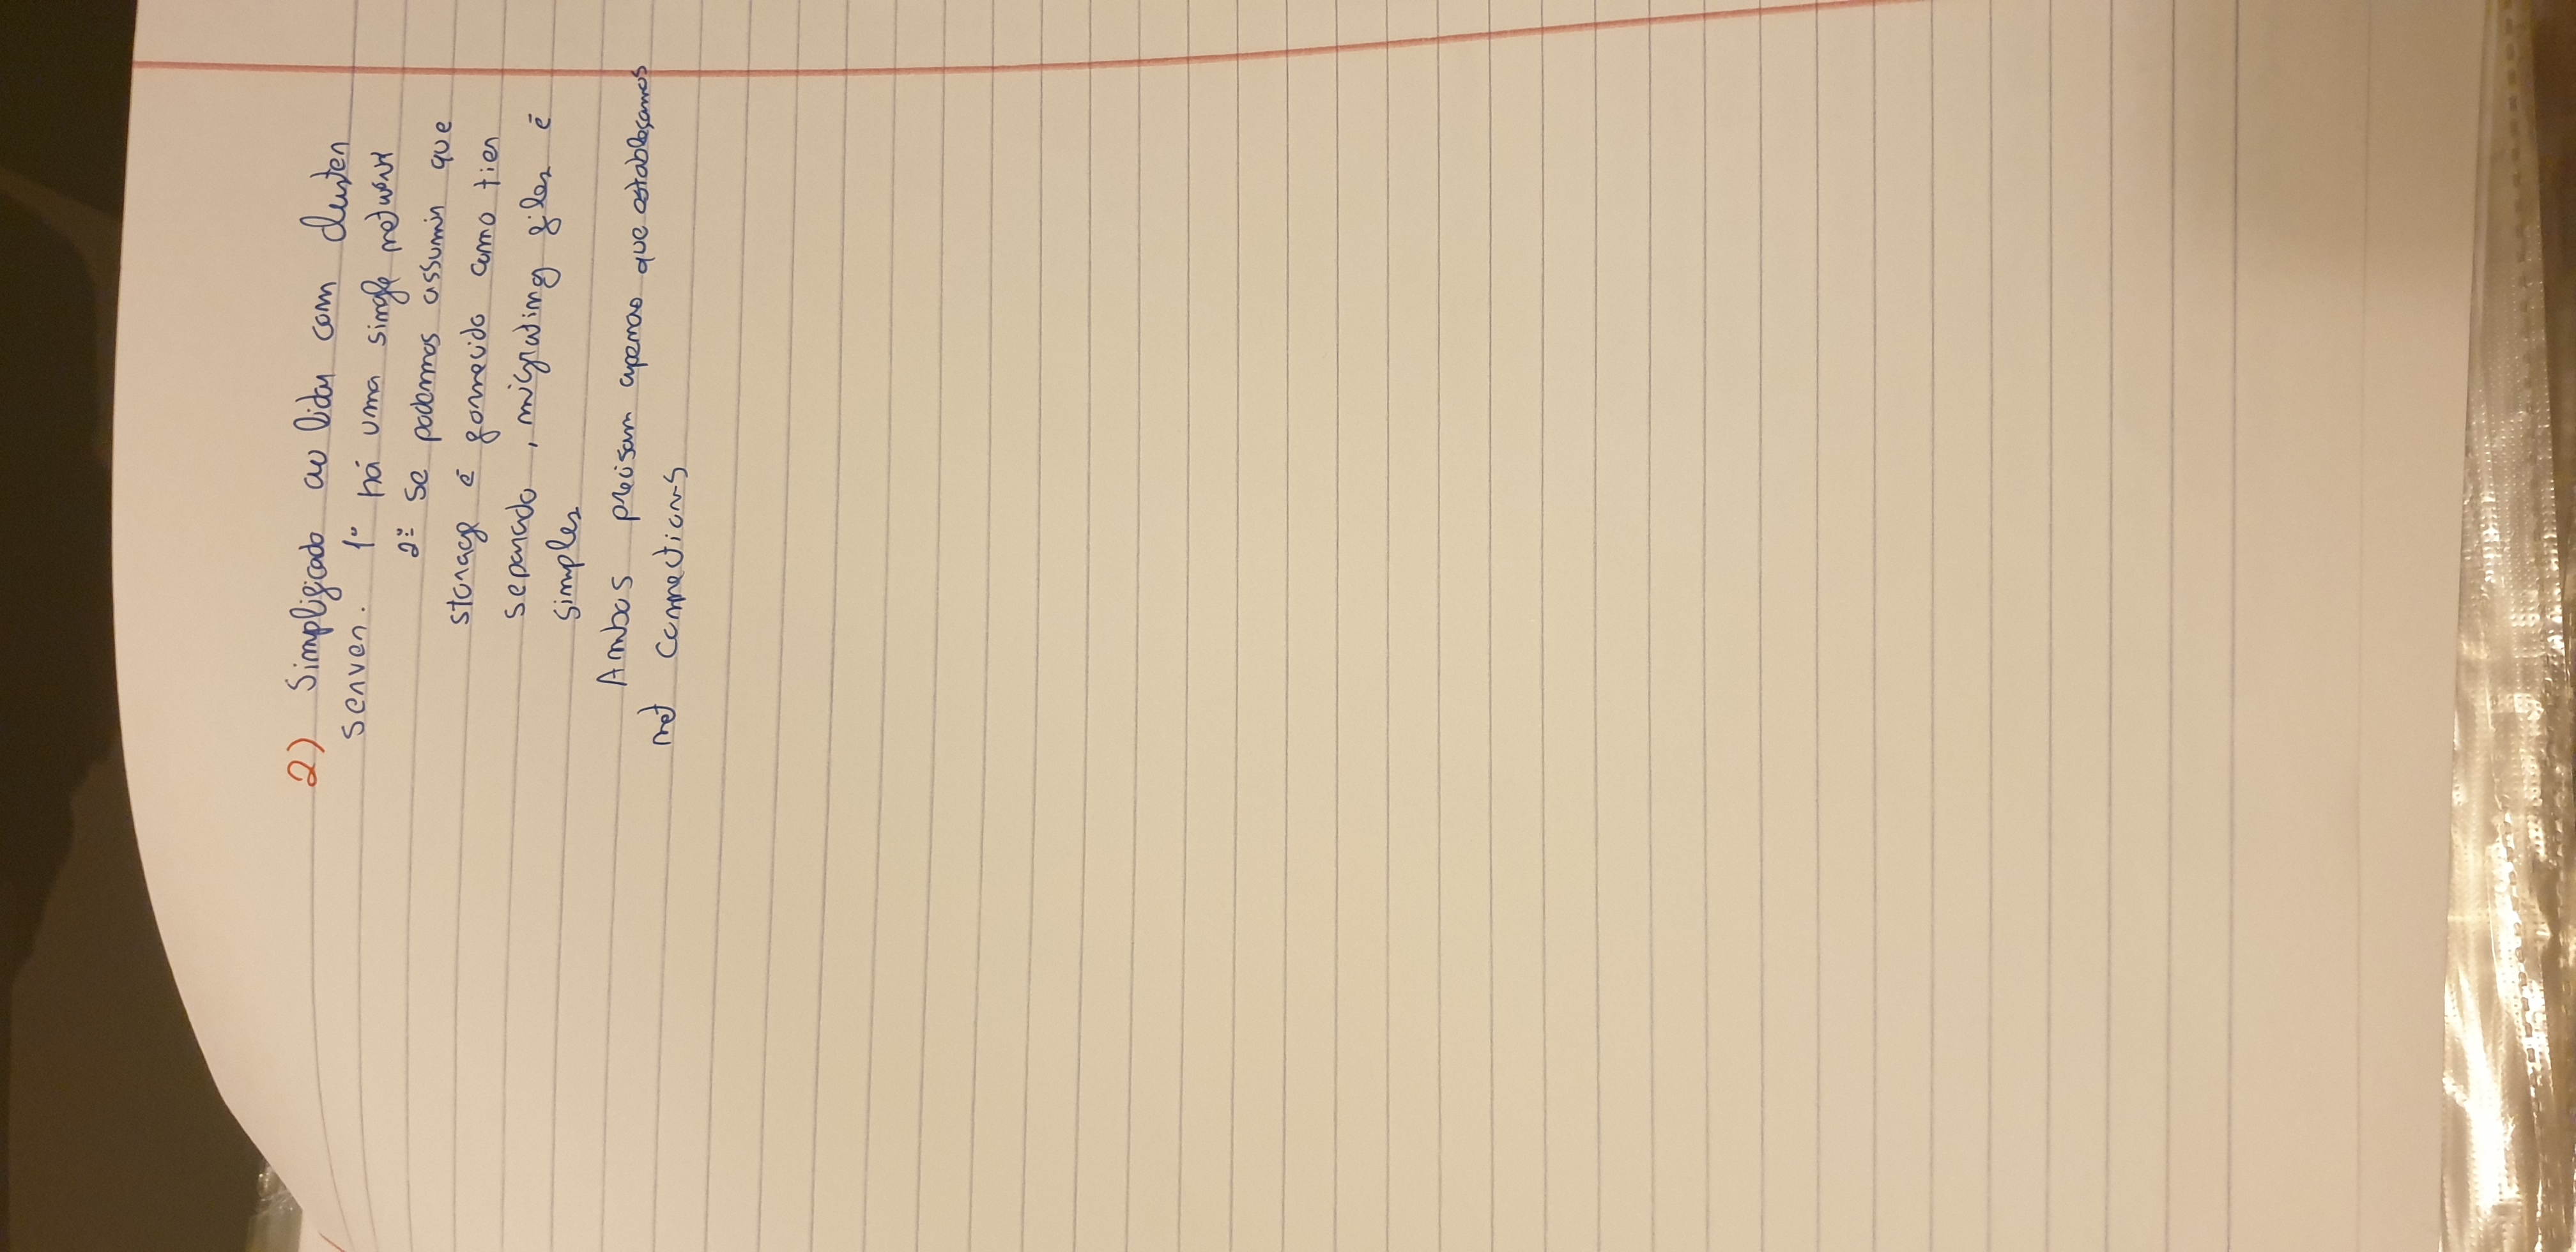 2) Simplificado ao lidar com cluster
server. 1º há uma single network
2º se podermos assumir que
storage é fornecido como tier
separado, migrating files é
simples
Ambos precisam apenas que estableçamos
net connections